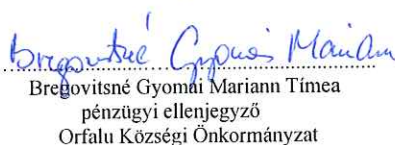 Bregovitsné Gyomai Mariann
Bregovitsné Gyomai Mariann Tímea
pénzügyi ellenjegyző
Orfalu Községi Önkormányzat